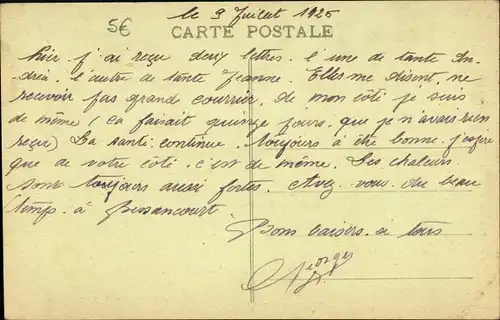 5€
le 9 Juillet 1925
CARTE POSTALE
hier. j'ai reçu deux lettres. l'une de tante An-
dréa. l'autre de tante Jeanne. Elles me disent, ne
recevoir pas grand courrier, de mon côté je suis
de même (ça faisait quinze jours. que je n'avais rien
reçu) La santé. continue. toujours à être bonne. j'espère
que de votre côté. c'est de même. Les chaleurs.
sont toujours aussi fortes. Avez. vous. du beau
temps. à Bessancourt
Bons baisers. a tous
Georges